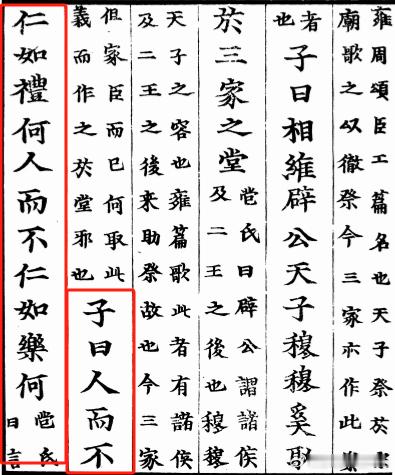 雍周頌臣工篇名也天子祭於宗
廟歌之以徹祭今三家亦作此樂
者
也
子曰相維辟公天子穆穆奚取
於三家之堂
苞氏曰辟公謂諸侯
及二王之後也穆穆
天子之容也雍篇歌此者有諸侯
及二王之後來助祭故也今三家
但家臣而已何取此
義而作之於堂邪也
子曰人而不
仁如禮何人而不仁如樂何
苞氏
曰言